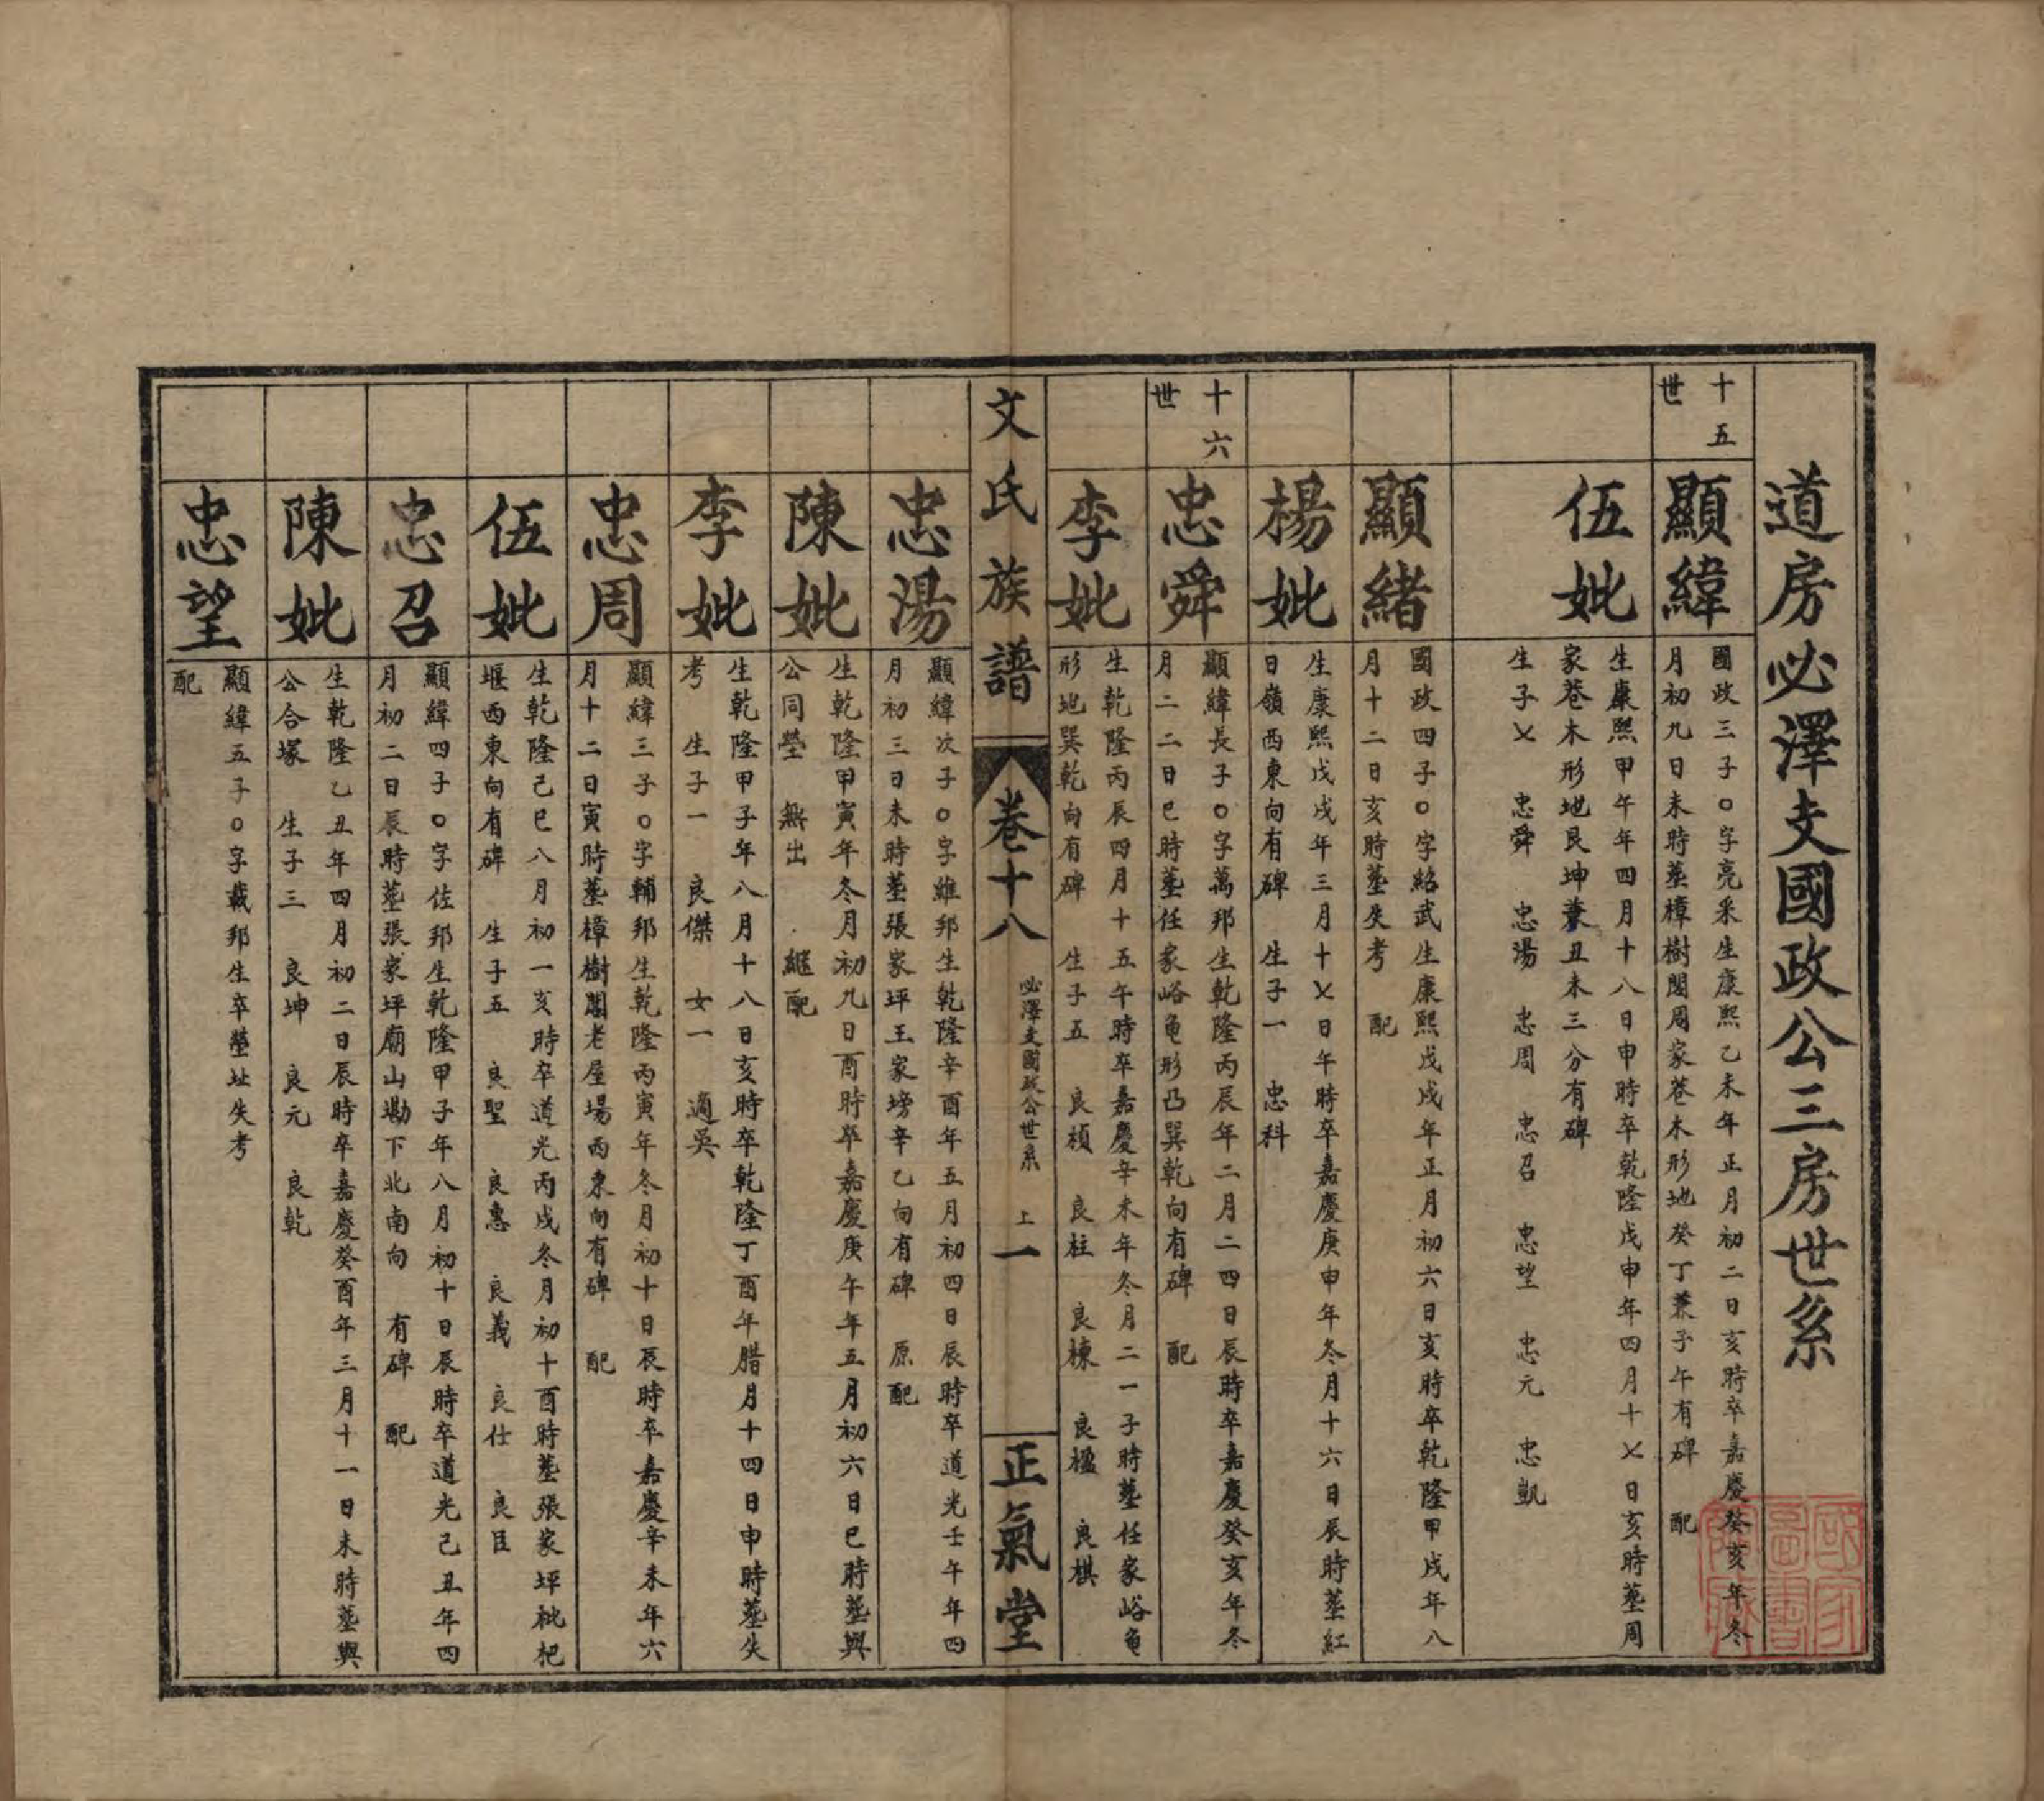 道房必澤支國政公三房世系
十五
世
顯緯
國政三子○字亮采生康熙乙未年正月初二日亥時卒嘉慶癸亥年冬
月初九日未時塟樟樹閣周家巷木形地癸丁兼子午有碑　配
伍妣
生康熙甲午年四月十八日申時卒乾隆戊申年四月十七日亥時塟周
家巷木形地艮坤兼丑未三分有碑
生子七　忠舜　忠湯　忠周　忠召　忠望　忠元　忠凱
顯緒
國政四子○字紹武生康熙戊戌年正月初六日亥時卒乾隆甲戌年八
月十二日亥時塟失考　配
楊妣
生康熙戊戌年三月十七日午時卒嘉慶庚申年冬月十六日辰時塟紅
日嶺西東向有碑　生子一　忠科
十六
世
忠舜
顯緯長子○字萬邦生乾隆丙辰年二月二四日辰時卒嘉慶癸亥年冬
月二二日巳時塟任家峪龟形凸巽乾向有碑　配
李妣
生乾隆丙辰四月十五午時卒嘉慶辛未年冬月二一子時塟任家峪龟
形地巽乾向有碑　生子五　良楨　良柱　良棟　良楹　良棋
文氏族譜
卷十八
必澤支國政公世系　上　一
正氣堂
忠湯
顯緯次子○字維邦生乾隆辛酉年五月初四日辰時卒道光壬午年四
月初三日未時塟張家坪王家塝辛乙向有碑　原配
陳妣
生乾隆甲寅年冬月初九日酉時卒嘉慶庚午年五月初六日巳時塟與
公同塋　無出　繼配
李妣
生乾隆甲子年八月十八日亥時卒乾隆丁酉年腊月十四日申時塟失
考　生子一　良傑　女一　適吳
忠周
顯緯三子○字輔邦生乾隆丙寅年冬月初十日辰時卒嘉慶辛未年六
月十二日寅時塟樟樹閣老屋場西東向有碑　配
伍妣
生乾隆己巳八月初一亥時卒道光丙戌冬月初十酉時塟張家坪枇杷
堰西東向有碑　生子五　良聖　良惠　良義　良仕　良臣
忠召
顯緯四子○字佐邦生乾隆甲子年八月初十日辰時卒道光己丑年四
月初二日辰時塟張家坪廟山墈下北南向　有碑　配
陳妣
生乾隆乙丑年四月初二日辰時卒嘉慶癸酉年三月十一日未時塟與
公合塚　生子三　良坤　良元　良乾
忠望
顯緯五子○字載邦生卒塋址失考
配